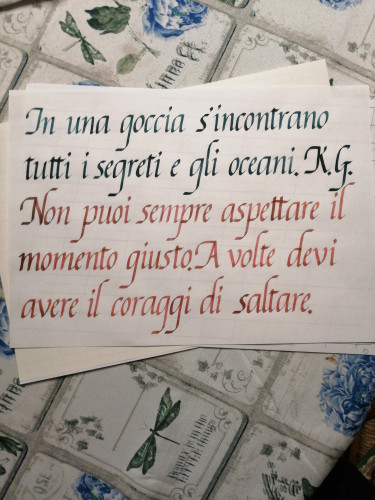 In una goccia s'incontrano
tutti i segreti e gli oceani. K.G.
Non puoi sempre aspettare il
momento giusto. A volte devi
avere il coraggi di saltare.